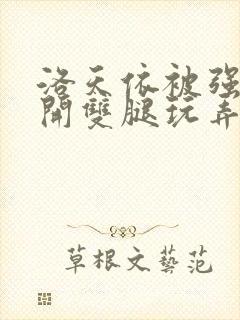 洛天依被强
開雙腿玩弄
草根文藝范